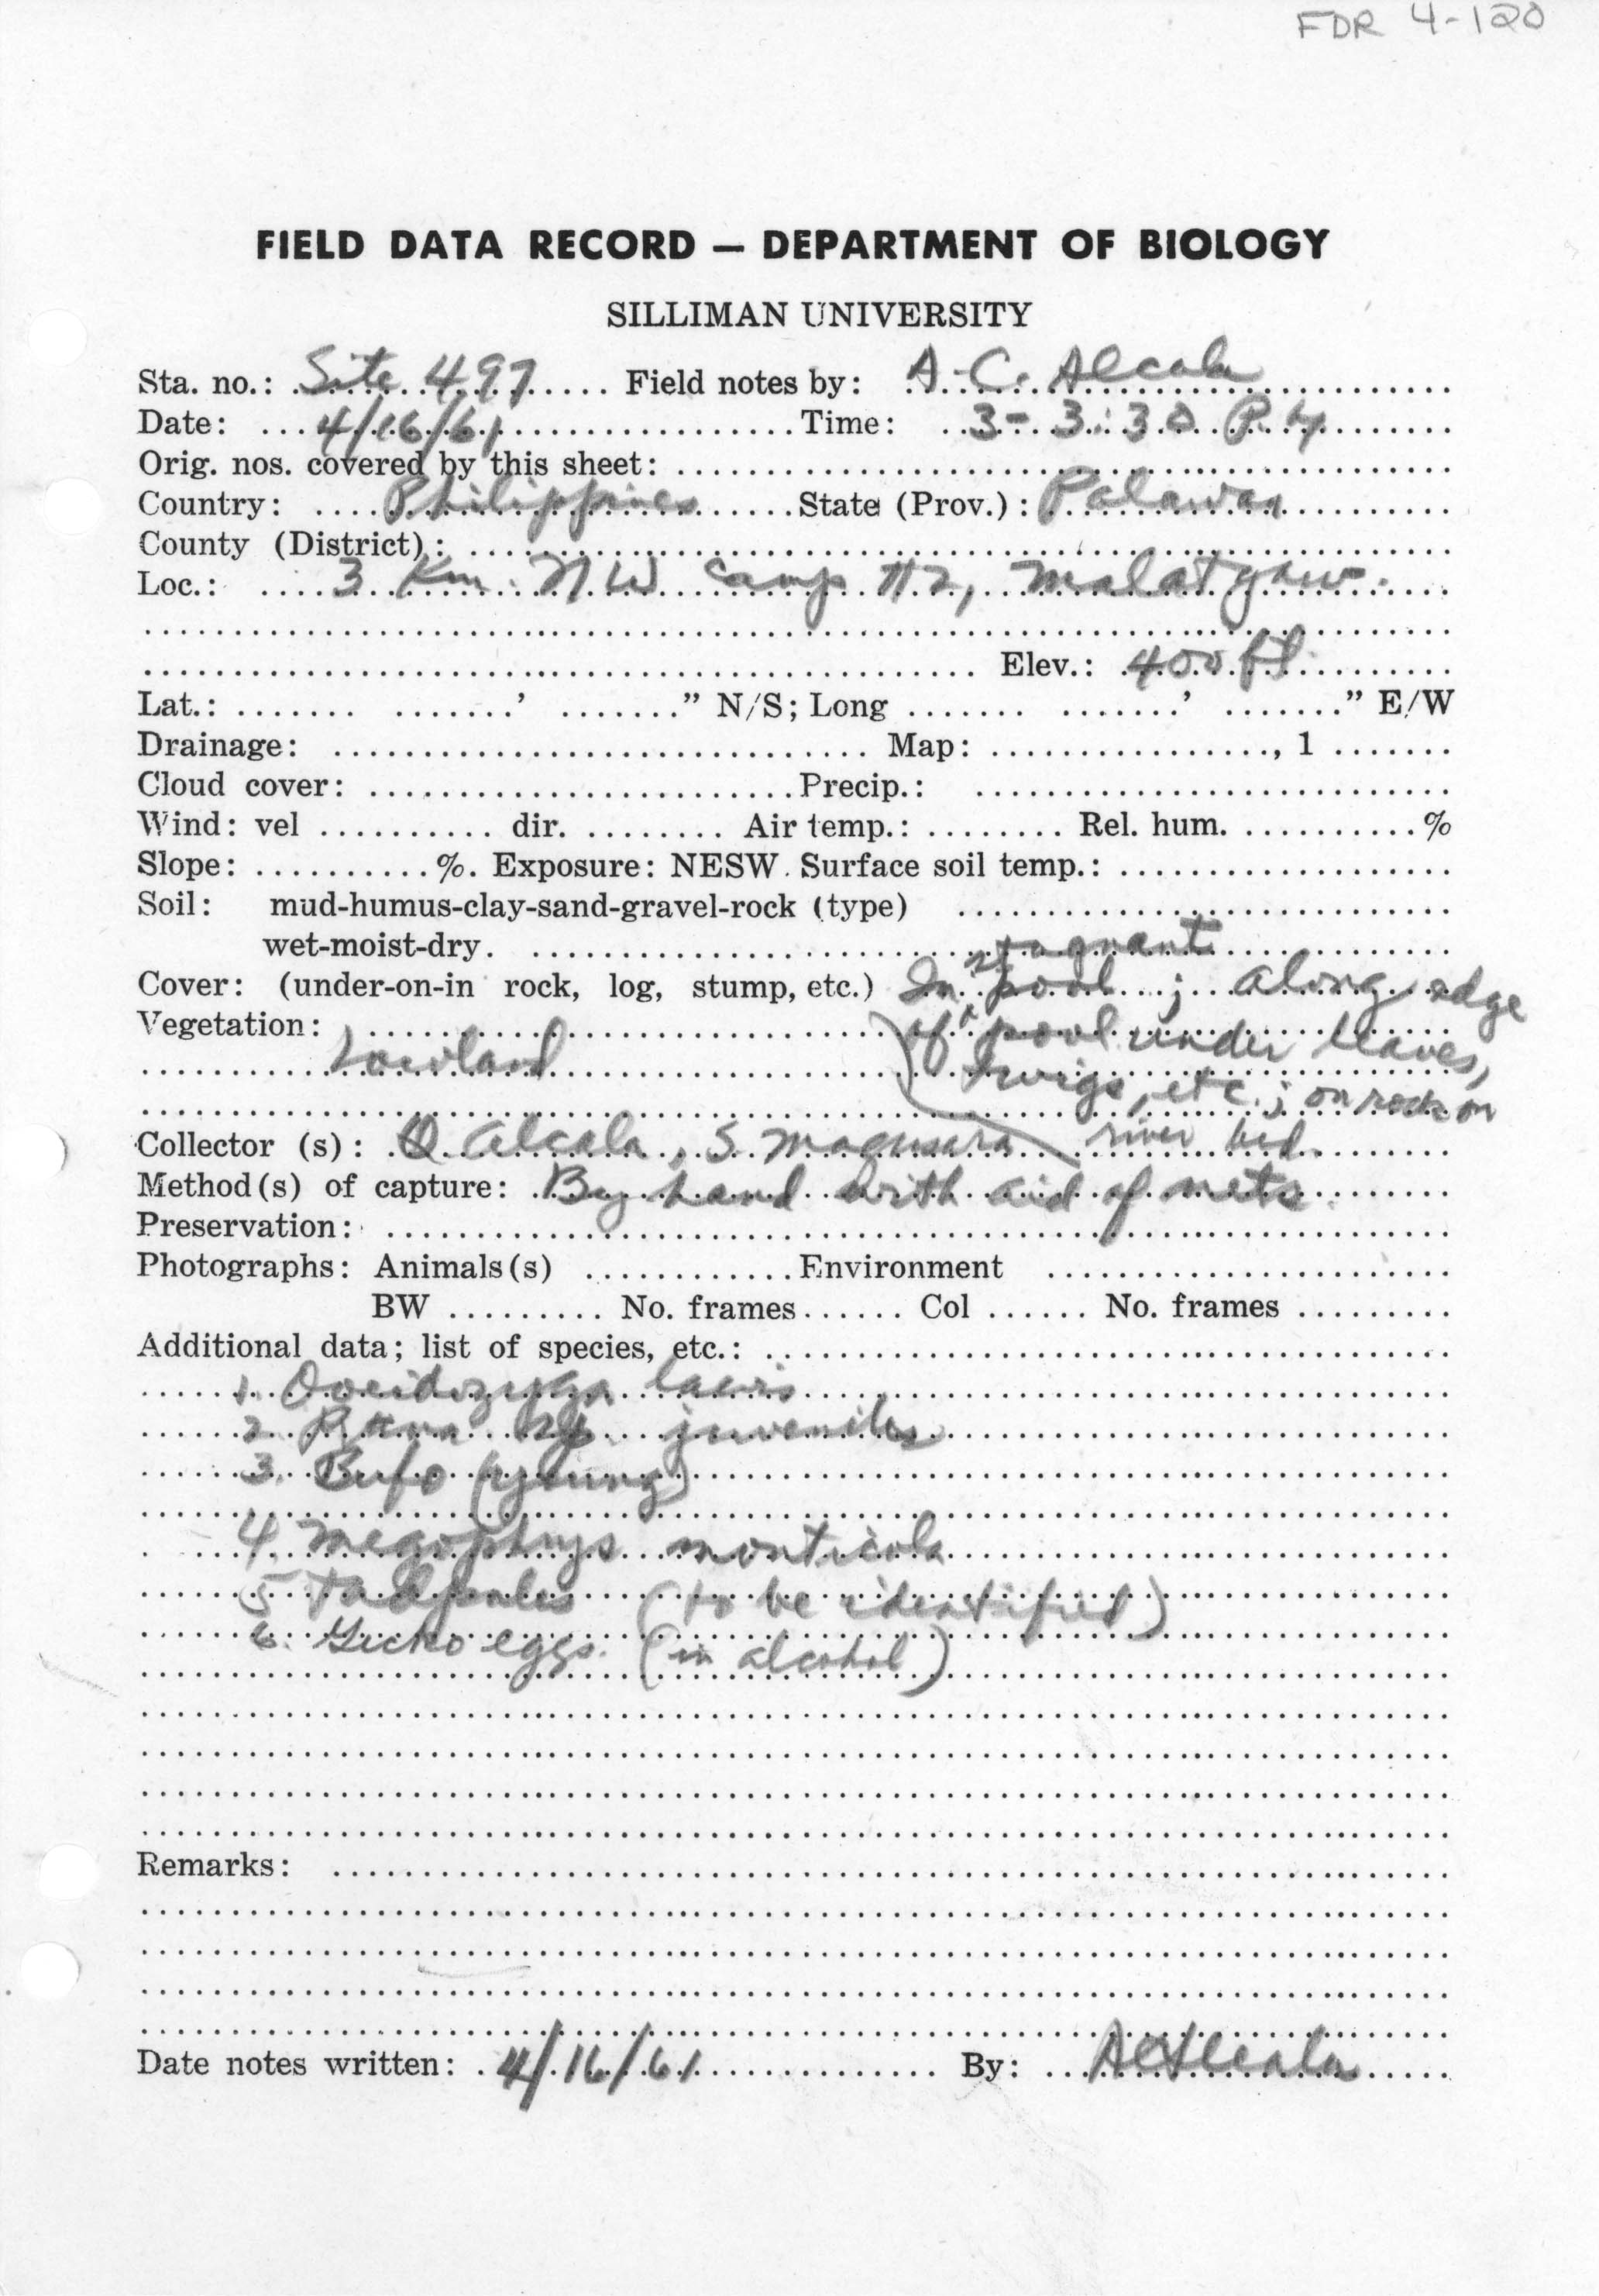 FDR 4-120
FIELD DATA RECORD — DEPARTMENT OF BIOLOGY
SILLIMAN UNIVERSITY
Sta. no.: Site 497 Field notes by: A. C. Alcala
Date: 4/16/61 Time: 3-3:30 P.M
Orig. nos. covered by this sheet:
Country: Philippines State (Prov.): Palawan
County (District):
Loc.: 3 Km. NW Camp #2, Malatgaw.
Elev.: 400 ft.
Lat.: ' " N/S; Long ' " E/W
Drainage: Map: , 1
Cloud cover: Precip.:
Wind: vel dir. Air temp.: Rel. hum. %
Slope: %. Exposure: NESW. Surface soil temp.:
Soil: mud-humus-clay-sand-gravel-rock (type)
wet-moist-dry.
Cover: (under-on-in rock, log, stump, etc.) In stagnant pool; along edge
Vegetation: of pool under leaves,
Lowland twigs, etc.; on rock on
river bed.
Collector (s): Alcala, S. Magusara
Method(s) of capture: By hand with aid of nets.
Preservation:
Photographs: Animals(s) Environment
BW No. frames Col No. frames
Additional data; list of species, etc.:
1. Ooeidozyga laevis
2. Rana sp. juveniles
3. Bufo (young)
4. Megophrys monticola
5 Tadpoles (to be identified)
6. Gecko eggs. (in alcohol)
Remarks:
Date notes written: 4/16/61 By: ACAlcala